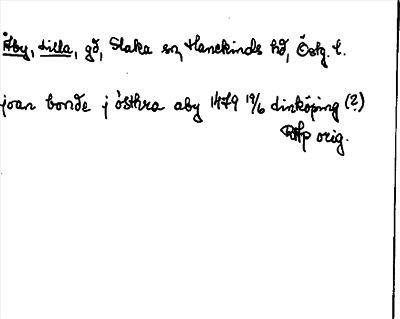 Åby, Lilla, gd, Slaka sn, Hanekinds hd, Östg. l.
joan bonde j östhra aby 1479 19/6 Linköping (?)
RAp orig.